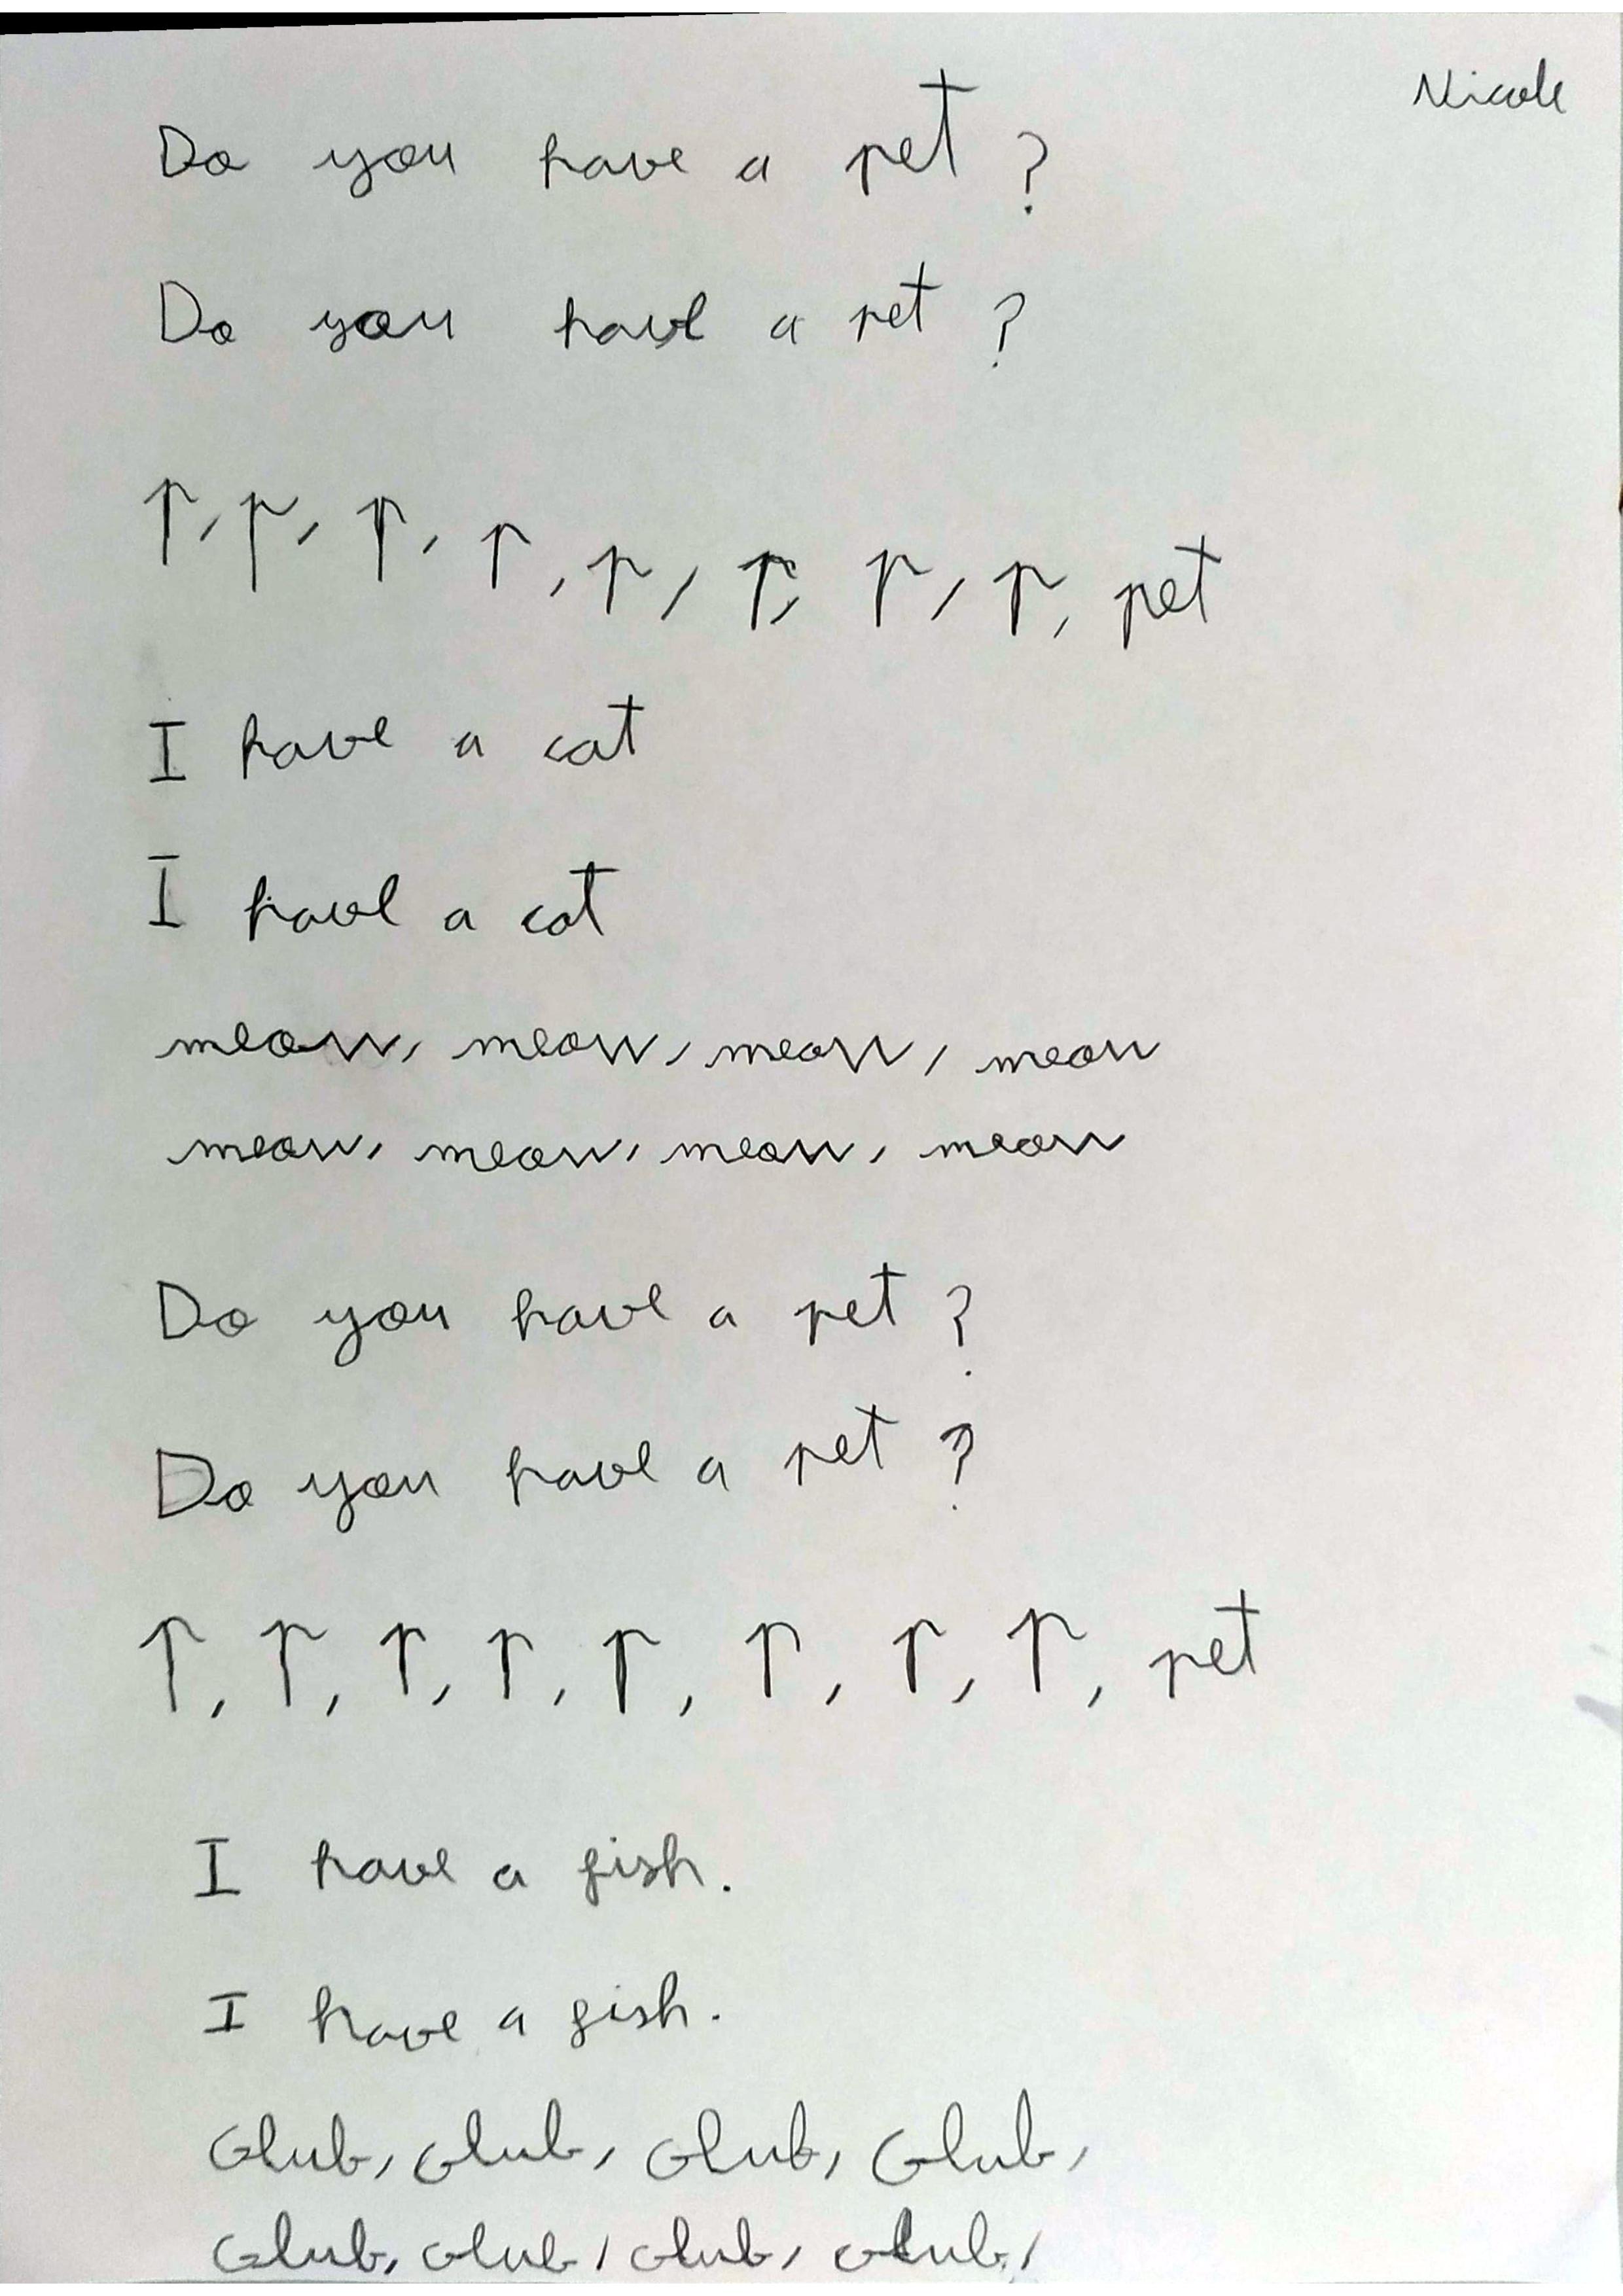 Nicole
Do you have a pet ?
Do you have a pet ?
p, p, p, p, p, p, p, p, pet
I have a cat
I have a cat
meow, meow, meow, meow
meow, meow, meow, meow
Do you have a pet ?
Do you have a pet ?
p, p, p, p, p, p, p, p, pet
I have a fish.
I have a fish.
Glub, Glub, Glub, Glub,
Glub, Glub, Glub, Glub,